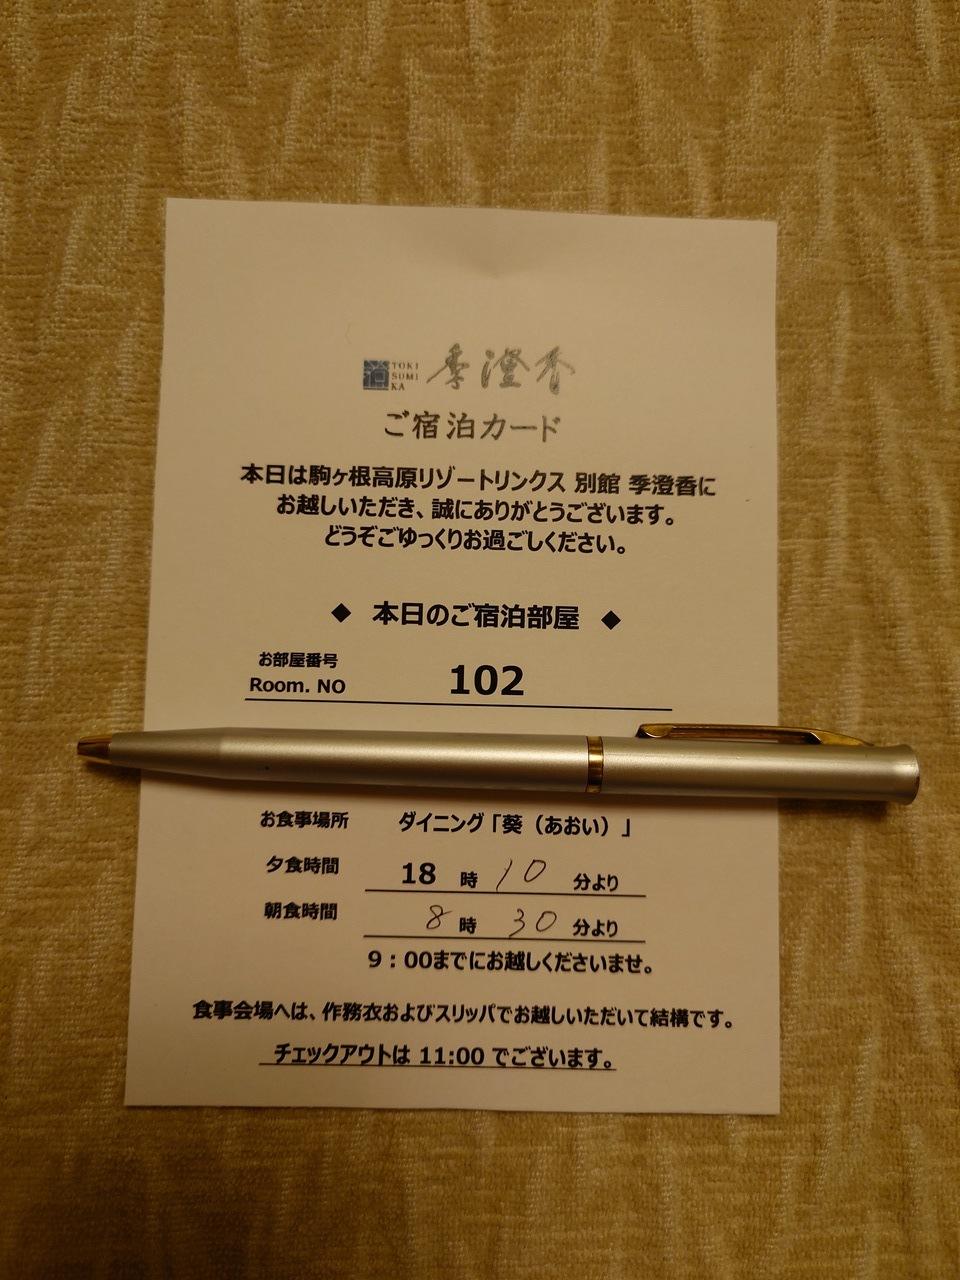 TOKI
SUMI
KA
季澄香
ご宿泊カード
本日は駒ヶ根高原リゾートリンクス 別館 季澄香に
お越しいただき、誠にありがとうございます。
どうぞごゆっくりお過ごしください。
◆ 本日のご宿泊部屋 ◆
お部屋番号
Room. NO 102
お食事場所 ダイニング「葵（あおい）」
夕食時間 18 時 10 分より
朝食時間 8 時 30 分より
9：00までにお越しくださいませ。
食事会場へは、作務衣およびスリッパでお越しいただいて結構です。
チェックアウトは 11:00 でございます。